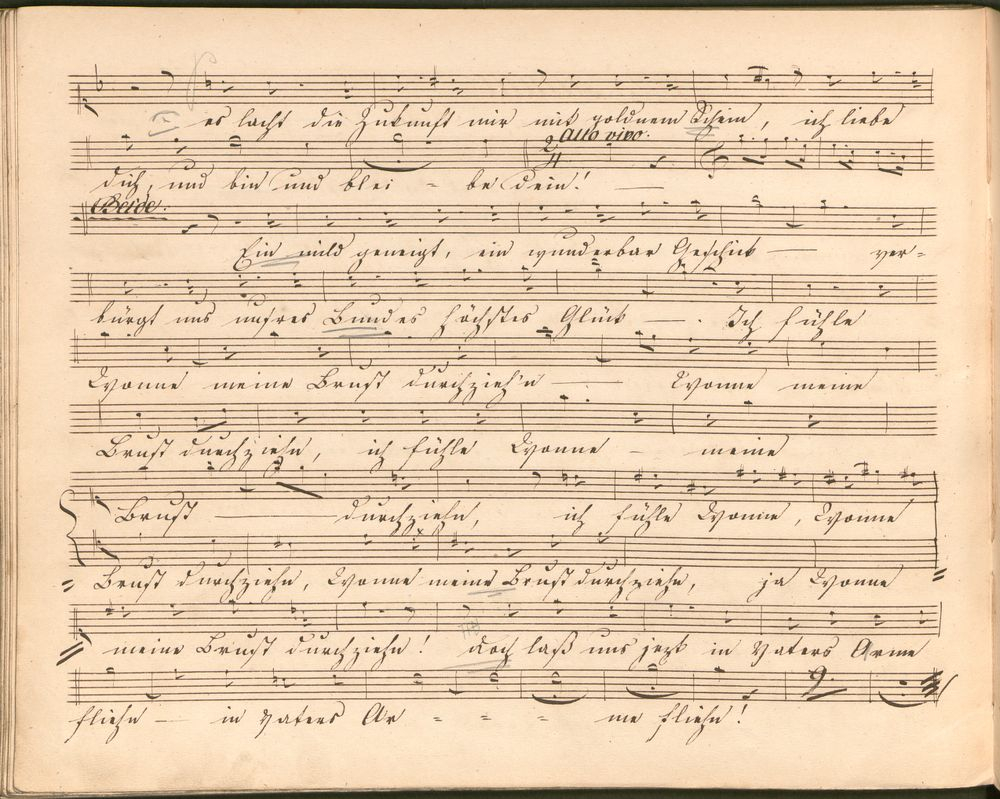 es lacht die Zukunft mir mit goldnem Schein, ich liebe
Allo vivo.
dich, und bin und blei - be dein!
Beide.
Ein mild geneigt, ein wunderbar Geschick — ver-
bürgt uns unsres Bundes höchstes Glück —. Ich fühle
Wonne meine Brust durchzieh'n — Wonne meine
Brust durchziehn, ich fühle Wonne — meine
Brust — durchziehn, ich fühle Wonne, Wonne
Brust durchziehn, Wonne meine Brust durchziehn, ja Wonne
meine Brust durchziehn! doch laß uns jezt in Vaters Arme
fliehn — in Vaters Ar - - - me fliehn!